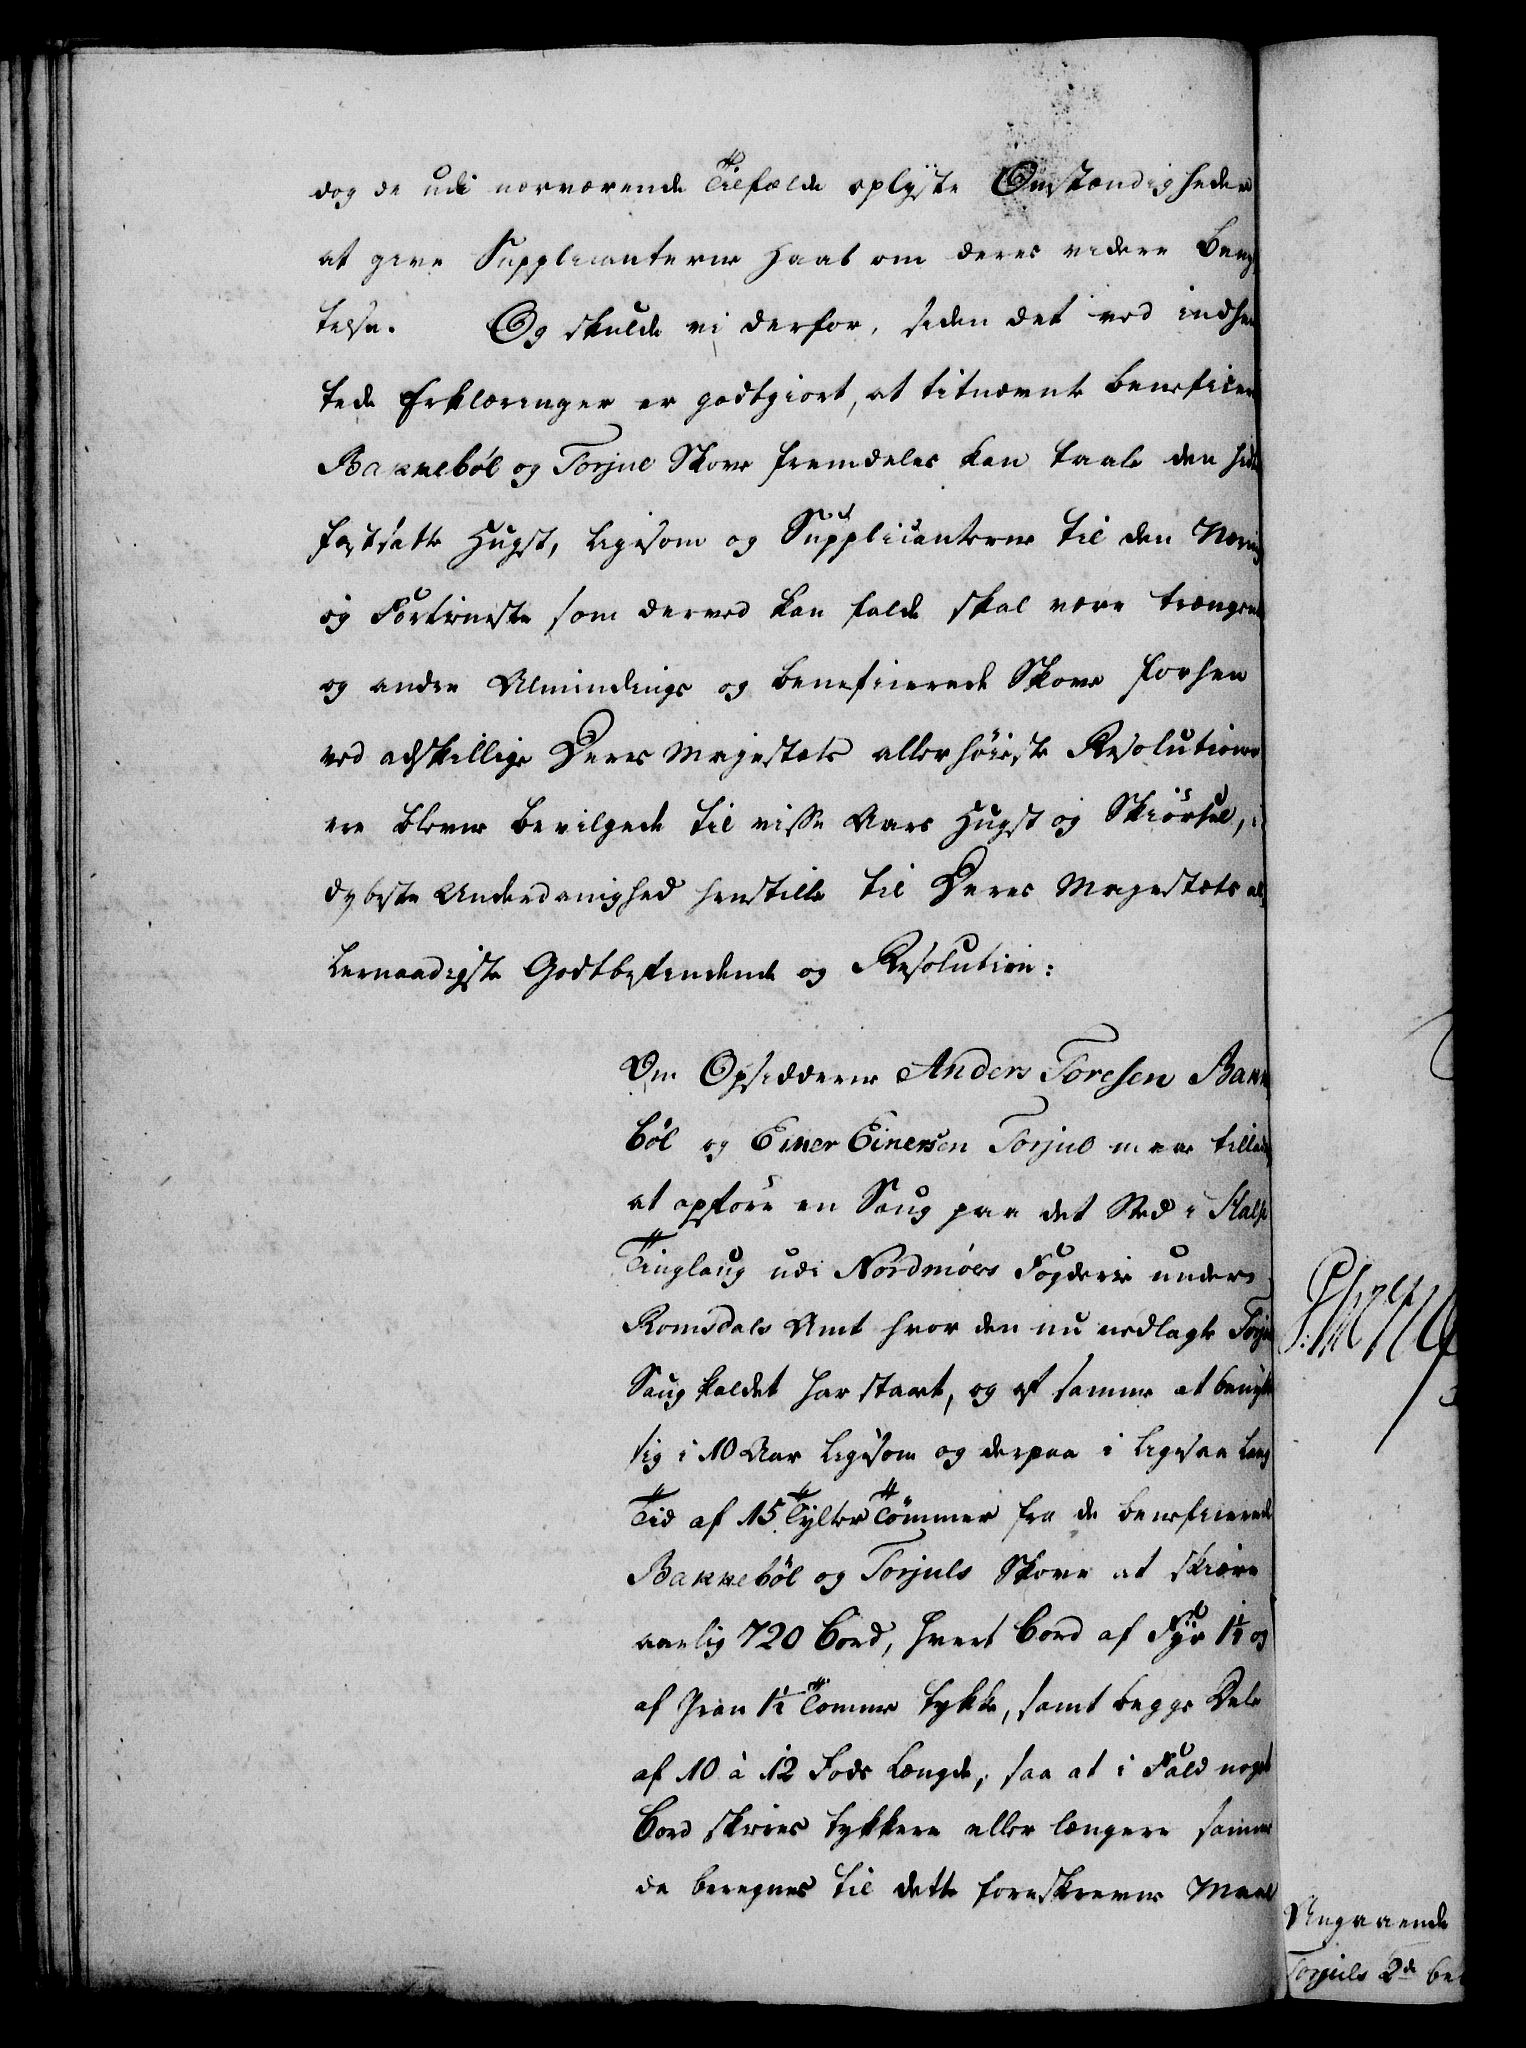 dog de udi nærværende Tilfælde oplyste Omstændigheder
at give Supplicanterne Haab om deres videre Beny
telse. Og skulde vi derfor, siden det ved indhen
tede Erklæringer er godtgiort, at titnævnte beneficerede
Bakkebøl og Torjul Skove fremdeles kan taale den hidtil
fastsatte Hugst, ligesom og Supplicanterne til den Næring
og Fortieneste som derved kan falde skal være trængende
og andre Almindings og beneficerede Skove forhen
ved adskillige Deres Majestæts allerhöieste Resolutioner
ere blevne bevilgede til visse Aars Hugst og Skiörsel, i
dybeste Underdanighed henstille til Deres Majestæts al
lernaadigste Godtbefindende og Resolution:
Om Opsidderne Anders Toresen Bakke
böl og Einer Einersen Torjul maae tillades
at opföre en Saug paa det Sted i Halse
Tinglaug udi Nordmöers Fogderie under
Romsdals Amt hvor den nu nedlagte Torjul
Saug kaldet har staaet, og af samme at benytte
sig i 10 Aar ligesom og derpaa i ligesaa lang
Tid af 15 Tylter Tömmer fra de beneficerede
Bakkeböl og Torjuls Skove at skiære
aarlig 720 Bord, hvert Bord af Fyr 1½ og
af Gran 1¼ Tomme tykke, samt begge Dele
af 10 à 12 Fods Længde, saa at i Fald noget
Bord skæres tykkere eller længere samme
da beregnes til dette foreskrevne Maal
Angaaende
Torjuls 2de be